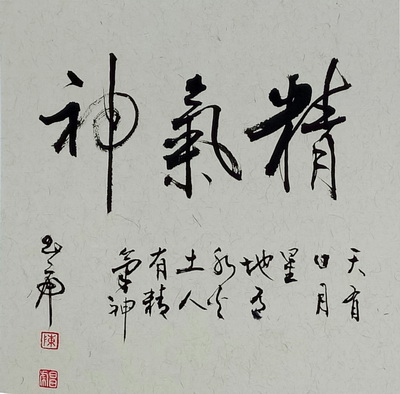 精氣神
天有
日月
星
地有
水火
土人
有精
氣神
陳